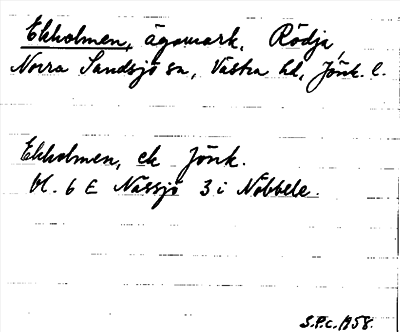 Ekholmen, ägomark, Rödja,
Norra Sandsjö sn, Västra hd, Jönk. l.
Ekholmen, ek Jönk.
bl. 6 E Nässjö 3 i Nöbbele.
S.P.c. 1958.